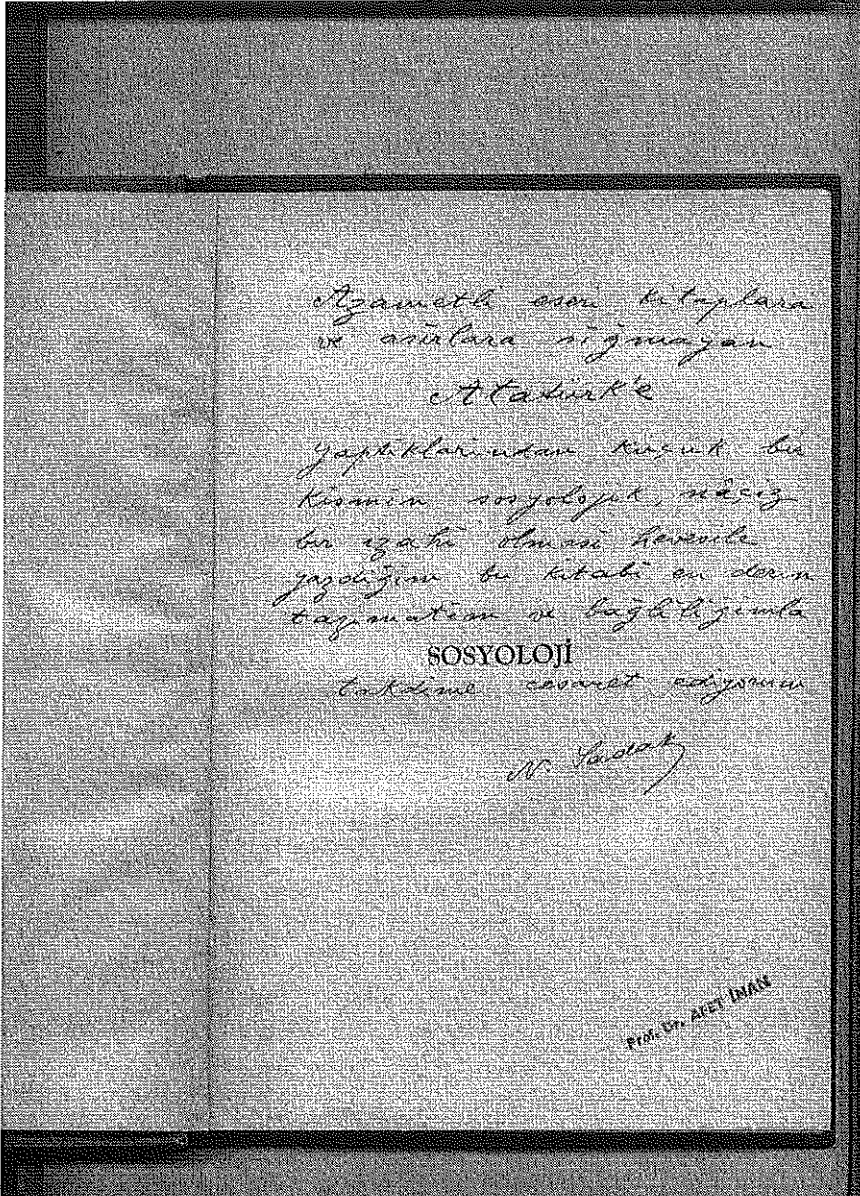 Azametli eseri kitaplara
ve asırlara sığmayan
Atatürk'e
yaptıklarından küçük bir
kısmın sosyolojik, nâçiz
bir izahı olması hevesile
yazdığım bu kitabı en derin
tazimatım ve bağlılığımla
SOSYOLOJİ
takdime cesaret ediyorum
N. Sadak
Prof. Dr. AFET İNAN